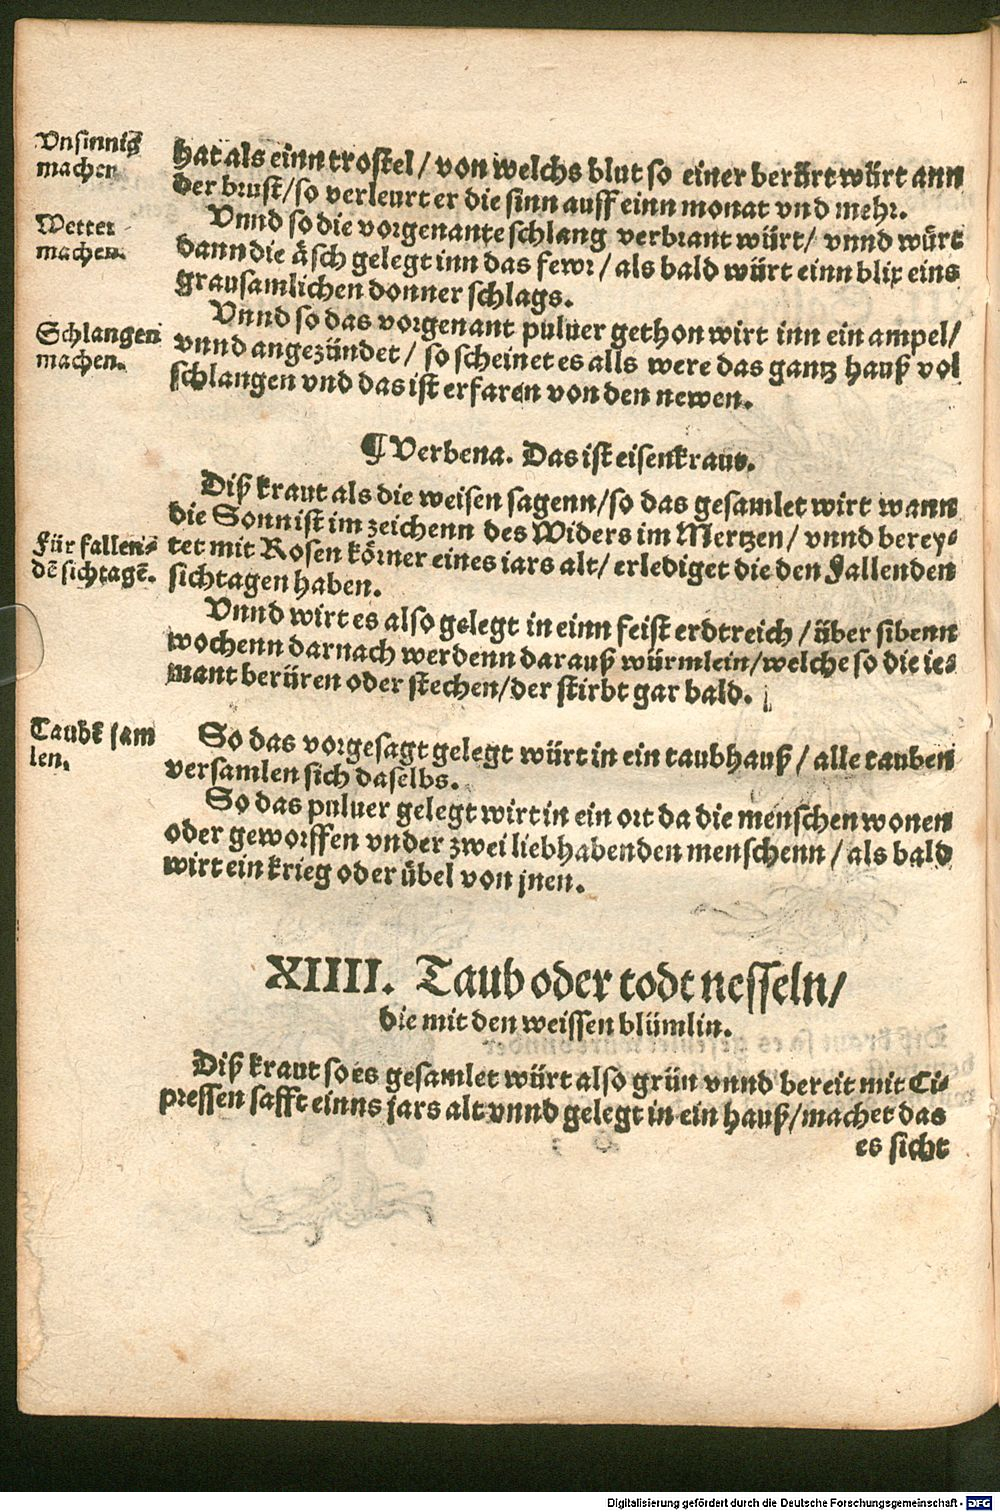 Vnsinnig
machen
hat als einn trostel / von welchs blut so einer berürt würt ann
der brust / so verleurt er die sinn auff einn monat vnd mehr.
Wetter
machen.
Vnnd so die vorgenante schlang verbrant würt / vnnd würt
dann die äsch gelegt inn das fewr / als bald würt einn blix eins
grausamlichen donnerschlags.
Schlangen
machen.
Vnnd so das vorgenant puluer gethon wirt inn ein ampel /
vnnd angezündet / so scheinet es alls were das gantz hauß vol
schlangen vnd das ist erfaren von den newen.
¶ Verbena. Das ist eisenkraut.
Diß kraut als die weisen sagenn / so das gesamlet wirt wann
die Sonn ist im zeichenn des Widers im Mertzen / vnnd berey⸗
Für fallen⸗
dē sichtagē.
tet mit Rosen körner eines iars alt / erlediget die den Fallenden
sichtagen haben.
Vnnd wirt es also gelegt in einn feist erdtreich / über sibenn
wochenn darnach werdenn darauß würmlein / welche so die ie⸗
mant berüren oder stechen / der stirbt gar bald.
Taubē sam
len.
So das vorgesagt gelegt würt in ein taubhauß / alle tauben
versamlen sich daselbs.
So das puluer gelegt wirt in ein ort da die menschen wonen
oder geworffen vnder zwei liebhabenden menschenn / als bald
wirt ein krieg oder übel von jnen.
XIIII. Taub oder todt nesseln /
die mit den weissen blümlin.
Diß kraut so es gesamlet würt also grün vnnd bereit mit Ci⸗
pressen safft einns jars alt vnnd gelegt in ein hauß / machet das
es sicht
Digitalisierung gefördert durch die Deutsche Forschungsgemeinschaft - DFG